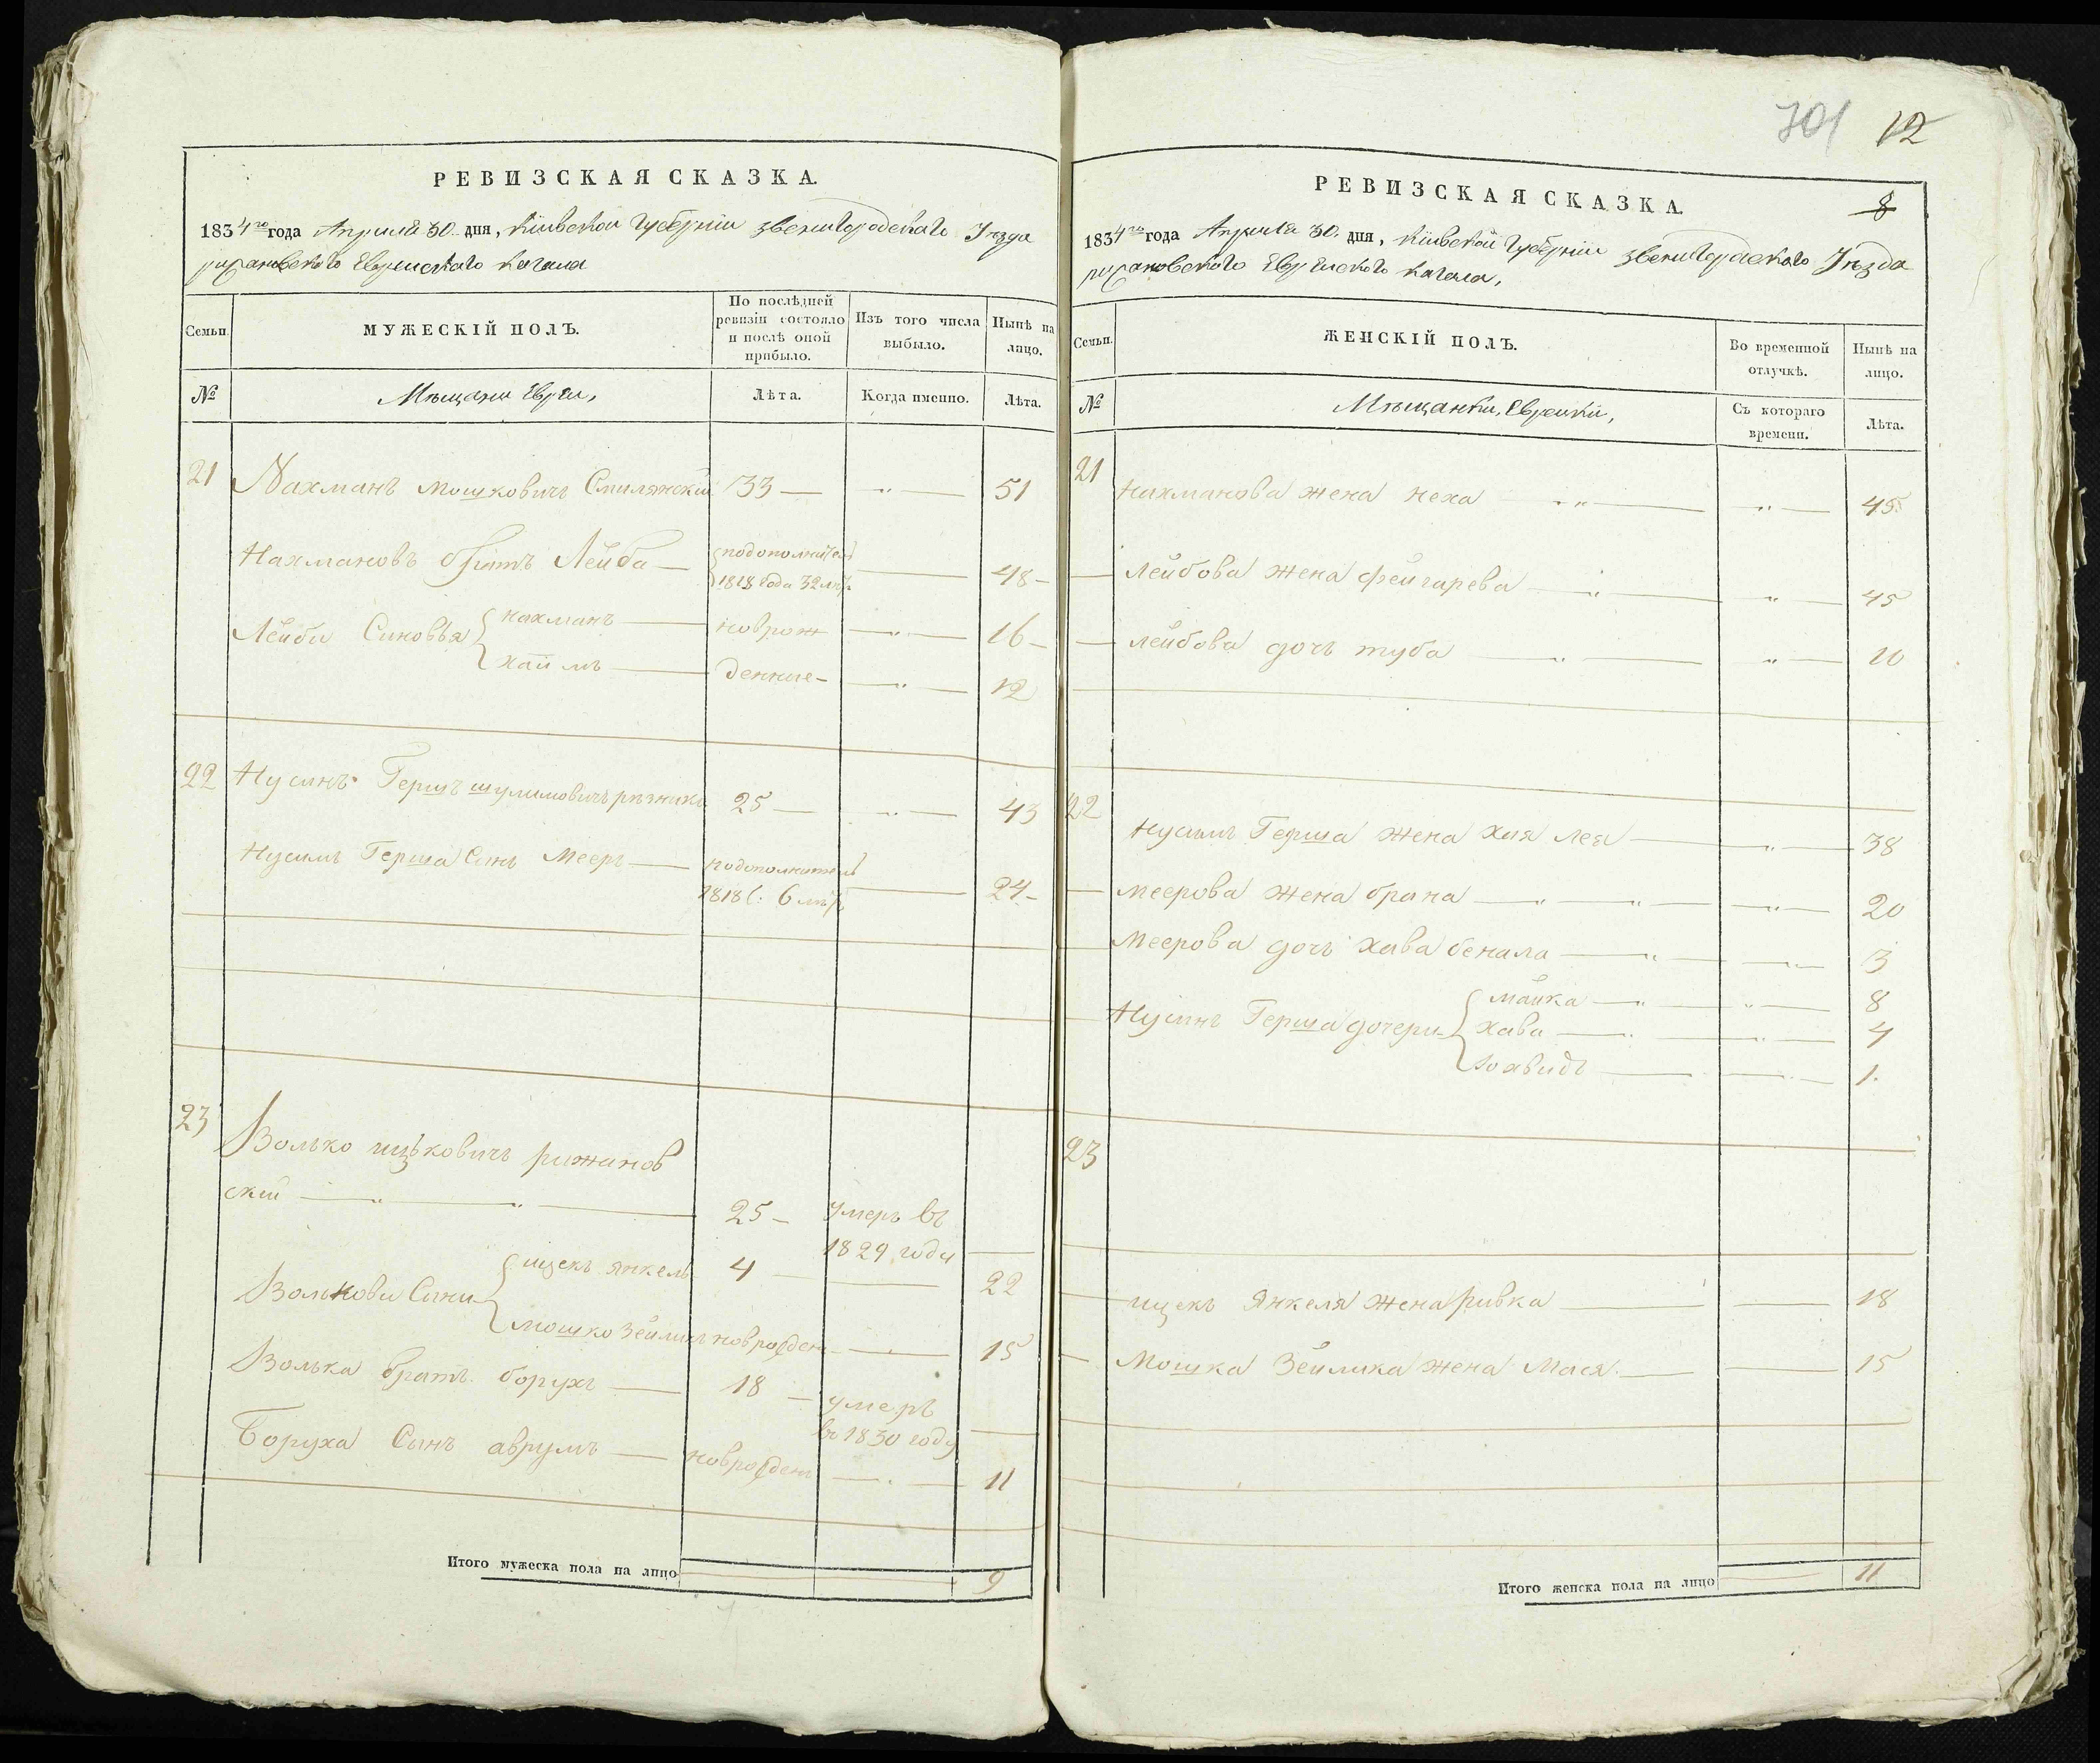 РЕВИЗСКАЯ СКАЗКА.
1834го года Апреля 30 дня, Кіивской Губерніи Звенигородскаго Уезда
рыжановского Еврейскаго Кагала
Семьи.
МУЖЕСКІЙ ПОЛЪ.
По послѣдней ревизіи состояло и послѣ оной прибыло.
Изъ того числа выбыло.
Нынѣ на лицо.
№
Мѣщани Евреи,
Лѣта.
Когда именно.
Лѣта.
21 Нахманъ Мошковичъ Смилянскій 33 — „ — 51
Нахмановъ братъ Лейба — подополнител 1818 года 32 лѣт — 48 —
Лейби Синовья Нахманъ — новрож — „ — 16 —
Хаймъ — денние — — „ — 12
22 Нусинъ Гершъ Шулимовичъ резникъ 25 — „ — 43
Нусинъ Герша Синъ Мееръ — подополнител 1818 г: 6 лѣт — 24 —
23 Волько ицковичъ рижанов
ский — „ — „ — 25 — умеръ въ
1829 году —
Волькови Сини ицекъ янкель 4 — — 22
мошко Зейликъ новрожден — — 15
Волька братъ борухъ — 18 — умеръ
въ 1830 году —
Боруха Синъ аврумъ — новрожден — . — 11
Итого мужеска пола на лицо 9
701 12
РЕВИЗСКАЯ СКАЗКА.
8
1834го года Апреля 30. дня, Кіивской Губерніи Звенигородскаго Уезда
рыжановского Еврейского Кагала,
Семьи.
ЖЕНСКІЙ ПОЛЪ.
Во временной отлучкѣ.
Нынѣ на лицо.
№
Мѣщанки, Еврейки,
Съ котораго времени.
Лѣта.
21 Нахманова жена Неха — „ — „ — 45
— Лейбова жена фейгарева — „ — „ — 45
— Лейбова дочъ туба — „ — „ — 10
22 Нусинъ Герша жена Хая Лея — „ — 38
— меерова жена брана — „ — „ — „ — 20
Меерова дочъ Хава бенала — „ — „ — 3
Нусинъ Герша дочери майка — „ — „ — 8
Хава — „ — „ — 4
— — 1.
23
— ицекъ Янкеля жена ривка — — 18
— Мошка Зейлика жена Мася. — — 15
Итого женска пола на лицо 11